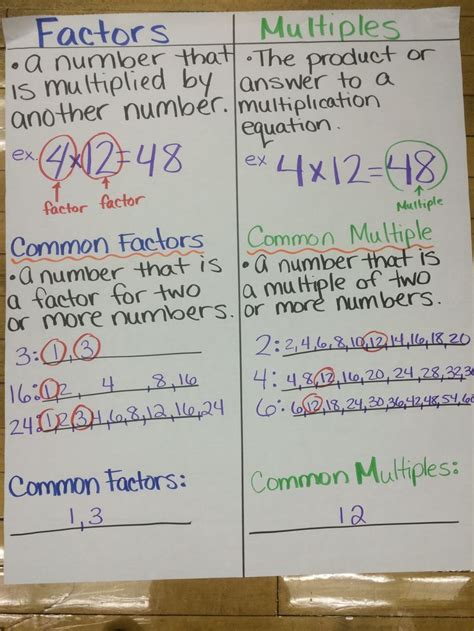 Factors
• a number that
is multiplied by
another number.
ex. 4x12=48
factor factor
Common Factors
• a number that is
a factor for two
or more numbers.
3: 1, 3
16: 1, 2, 4, 8, 16
24: 1, 2, 3, 4, 6, 8, 12, 16, 24
Common Factors:
1, 3
Multiples
• The product or
answer to a
multiplication
equation.
ex 4x12=48
Multiple
Common Multiple
• a number that is
a multiple of two
or more numbers.
2: 2, 4, 6, 8, 10, 12, 14, 16, 18, 20
4: 4, 8, 12, 16, 20, 24, 28, 32, 3
6: 6, 12, 18, 24, 30, 36, 42, 48, 54, 6
Common Multiples:
12